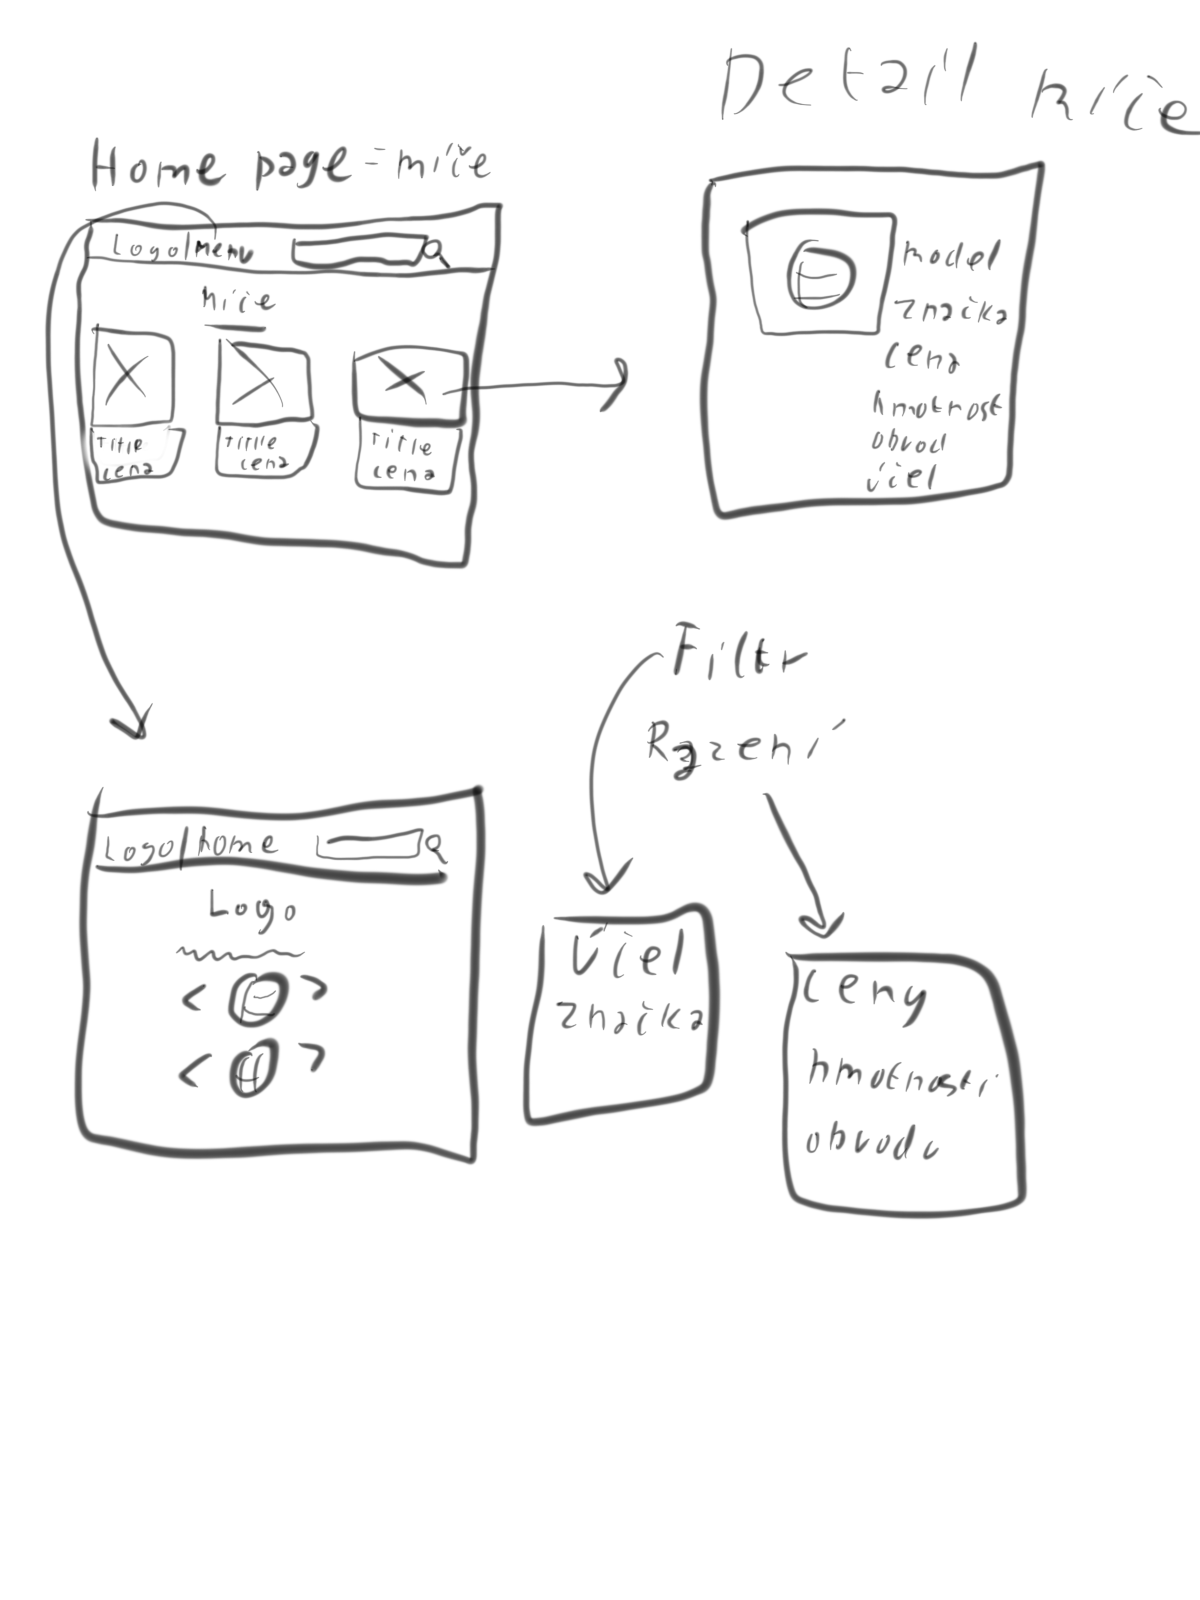 Detail míče
Home page = míče
Logo/menu
míče
Title
cena
Title
cena
Title
cena
model
značka
cena
hmotnost
obvod
účel
Filtr
Řazení
Logo/home
Logo
< >
< >
Účel
značka
ceny
hmotnosti
obvodu